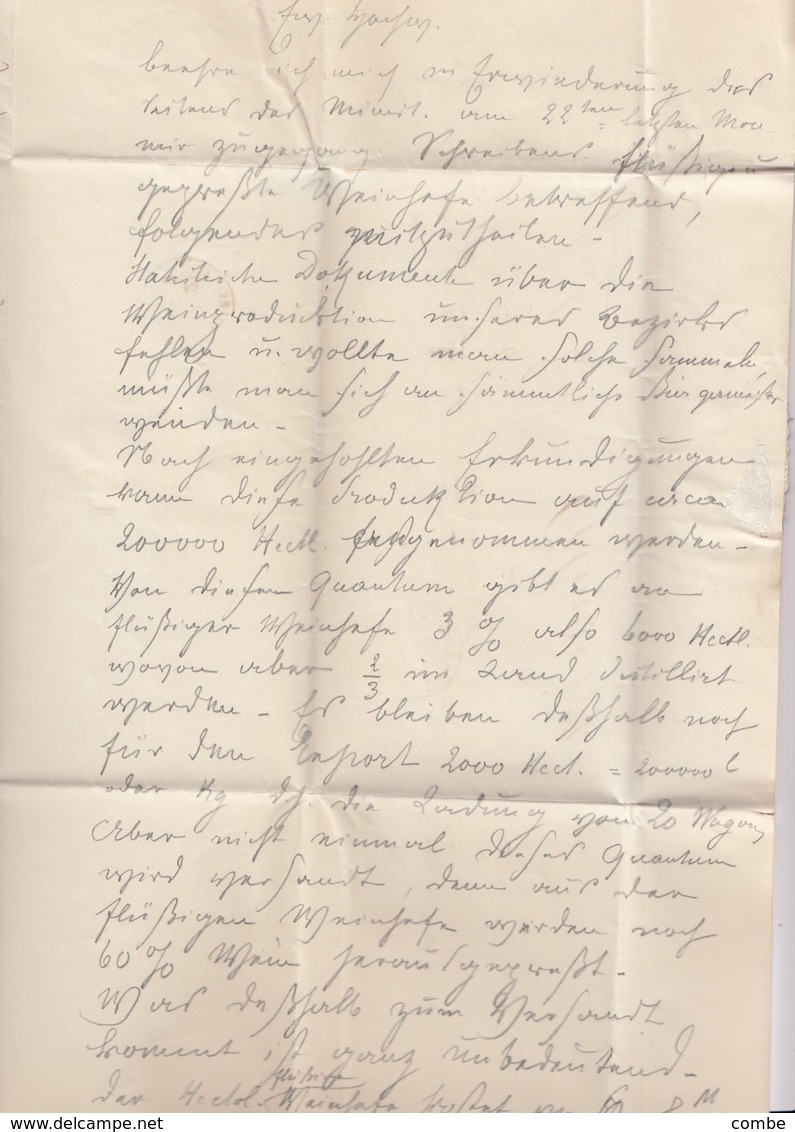 Ew. Hochw.
beehre ich mich in Erwiederung des
Seitens des Minist. am 22ten letzten Mon.
mir zugegang. Schreibens flüßigen u
gepreßte Weinhefe betreffend,
folgendes mitzutheilen –
Dokumente über die
Weinproduktion unseres Bezirks
fehlen u. wollte man solche sammeln,
müßte man sich an sämmtliche Bürgermeister
wenden –
Nach eingeholten Erkundigungen
kann diese Produktion auf circa
200000 Hectl. angenommen werden –
Von diesem Quantum gibt es an
flüßiger Weinhefe 3 % also 6000 Hectl.
wovon aber 2/3 im Land distillirt
werden – Es bleiben deßhalb noch
für den Export 2000 Hect. = 200000 l
oder Kg d.h. die Ladung von 20 Wagons
Aber nicht einmal dieses Quantum
wird versandt, denn aus der
flüßigen Weinhefe werden noch
60 % Wein herausgepreßt –
Was deßhalb zum Versandt
kommt ist ganz unbedeutend –
flüßige
Der Hectol. Weinhefe kostet 8 M
combe